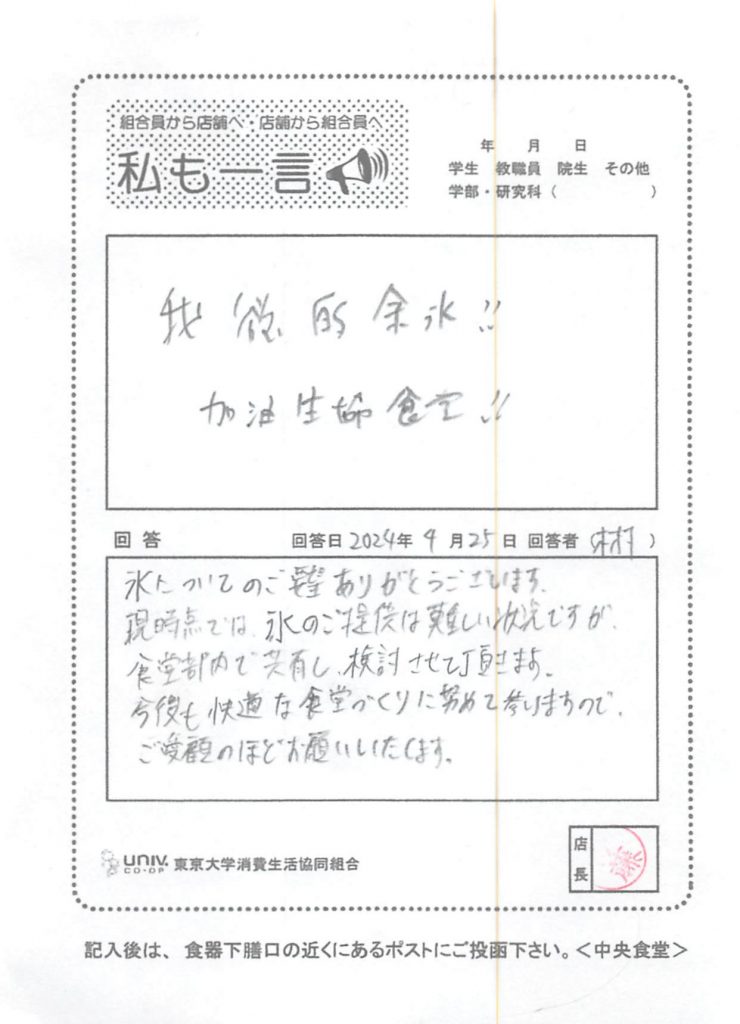 組合員から店舗へ・店舗から組合員へ
私も一言
年 月 日
学生 教職員 院生 その他
学部・研究科（ ）
我 欲 的 余 氷!!
加油生協食堂!!
回答 回答日2024年4月25日 回答者 ）
氷についてのご要望ありがとうございます。
現時点では、氷のご提供は難しい状況ですが、
食堂部内で共有し、検討させて頂きます。
今後も快適な食堂づくりに努めて参りますので、
ご愛顧のほどお願いいたします。
UNIV. CO-OP 東京大学消費生活協同組合
店長
記入後は、食器下膳口の近くにあるポストにご投函下さい。＜中央食堂＞